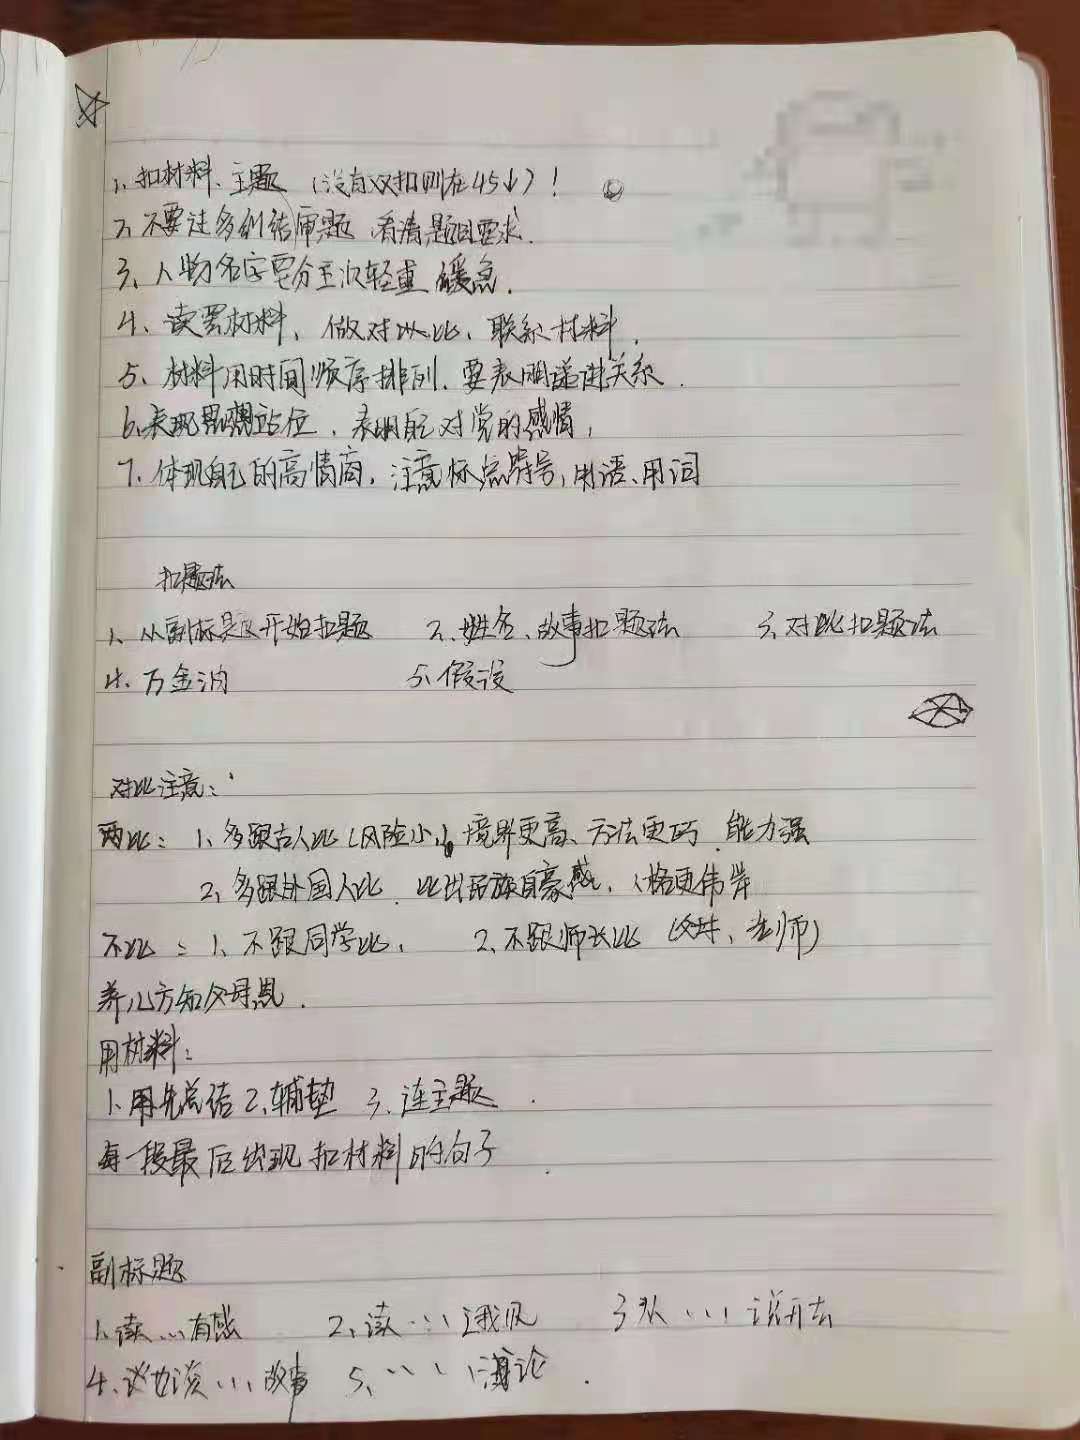 1、扣材料、主题（没有双扣则在45↓）！
2、不要过多纠结审题，看清题目要求.
3、人物名字要分主次轻重 缓急.
4、读罢材料、做对比、联系材料.
5、材料用时间顺序排列、要表明递进关系.
6、表现思想站位，表明自己对党的感情，
7、体现自己的高情商，注意标点符号，用语、用词
扣题法
1、从副标题开始扣题 2、姓名、故事扣题法 3、对比扣题法
4、万金油 5、假设
对比注意：
两比：1、多跟古人比（风险小，境界更高、方法更巧、能力强
2、多跟外国人比、比出民族自豪感、人格更伟岸
不比：1、不跟同学比， 2、不跟师长比（父母、老师）
养儿方知父母恩.
用材料：
1、用先总结 2、铺垫 3、连主题.
每一段最后出现扣材料的句子.
副标题
1、读...有感 2、读...我见 3从...说开去
4、也谈...故事 5、....论.